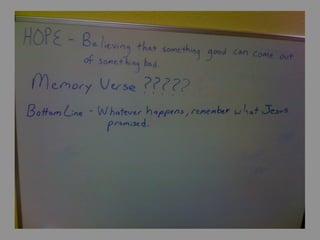 HOPE - Believing that something good can come out
of something bad.
Memory Verse ?????
Bottom Line - Whatever happens, remember what Jesus
promised.